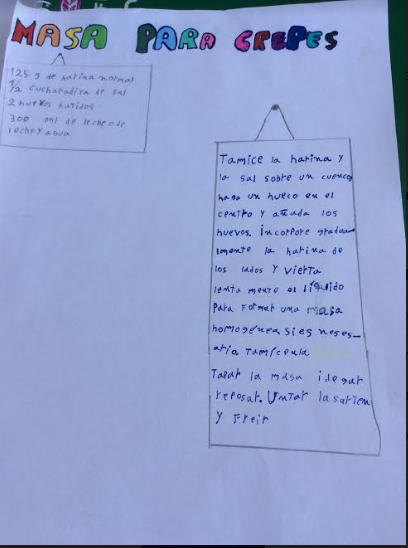 MASA PARA CREPES
125 g de harina normal
1/2 cucharadita de sal
2 huevos batidos
300 ml de leche o de
leche y agua
Tamice la harina y
la sal sobre un cuenco
haga un hueco en el
centro y añada los
huevos. incorpore gradua-
lmente la harina de
los lados y vierta
lenta mente el líquido
Para Formar una masa
homogénea si es neses-
ario Tamícela
Tapar la masa i degar
reposar. Untar la sarten
y Freir